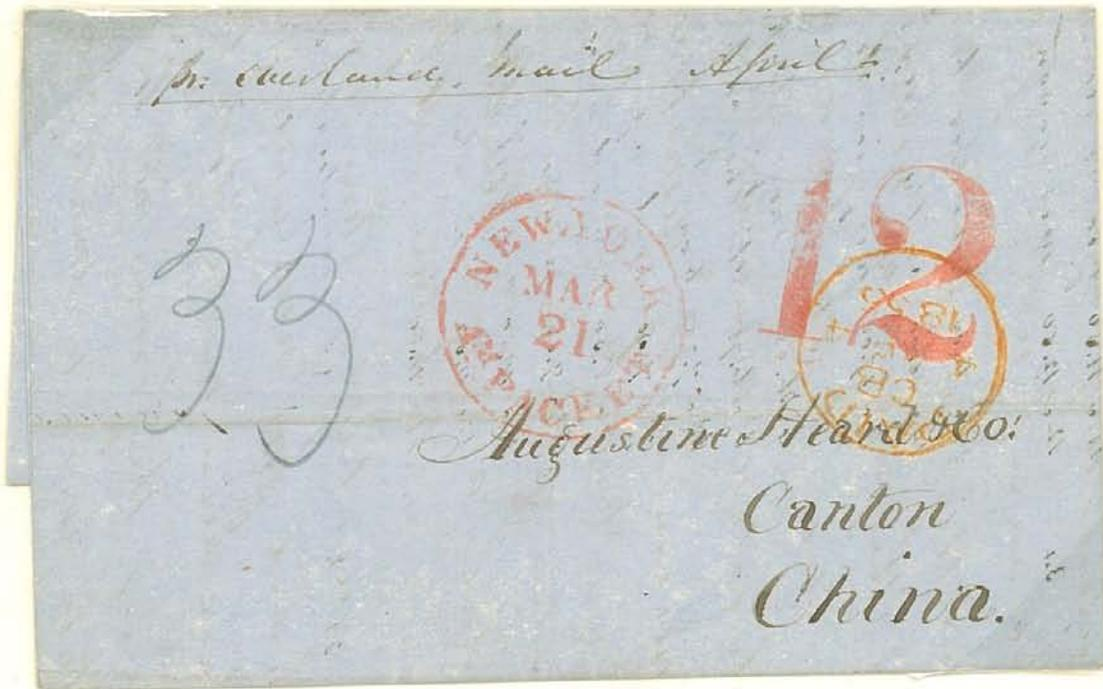 pr. overland mail April
33
NEW YORK
MAR
21
AM PACKET
12
Augustine Heard & Co:
Canton
China.